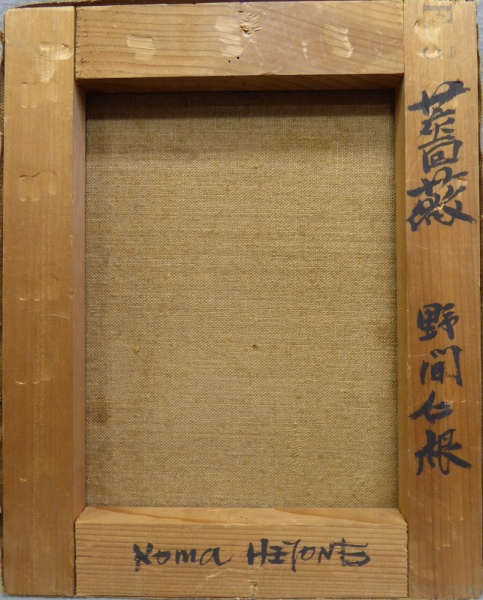 薔薇
野間仁根
Noma HITONE